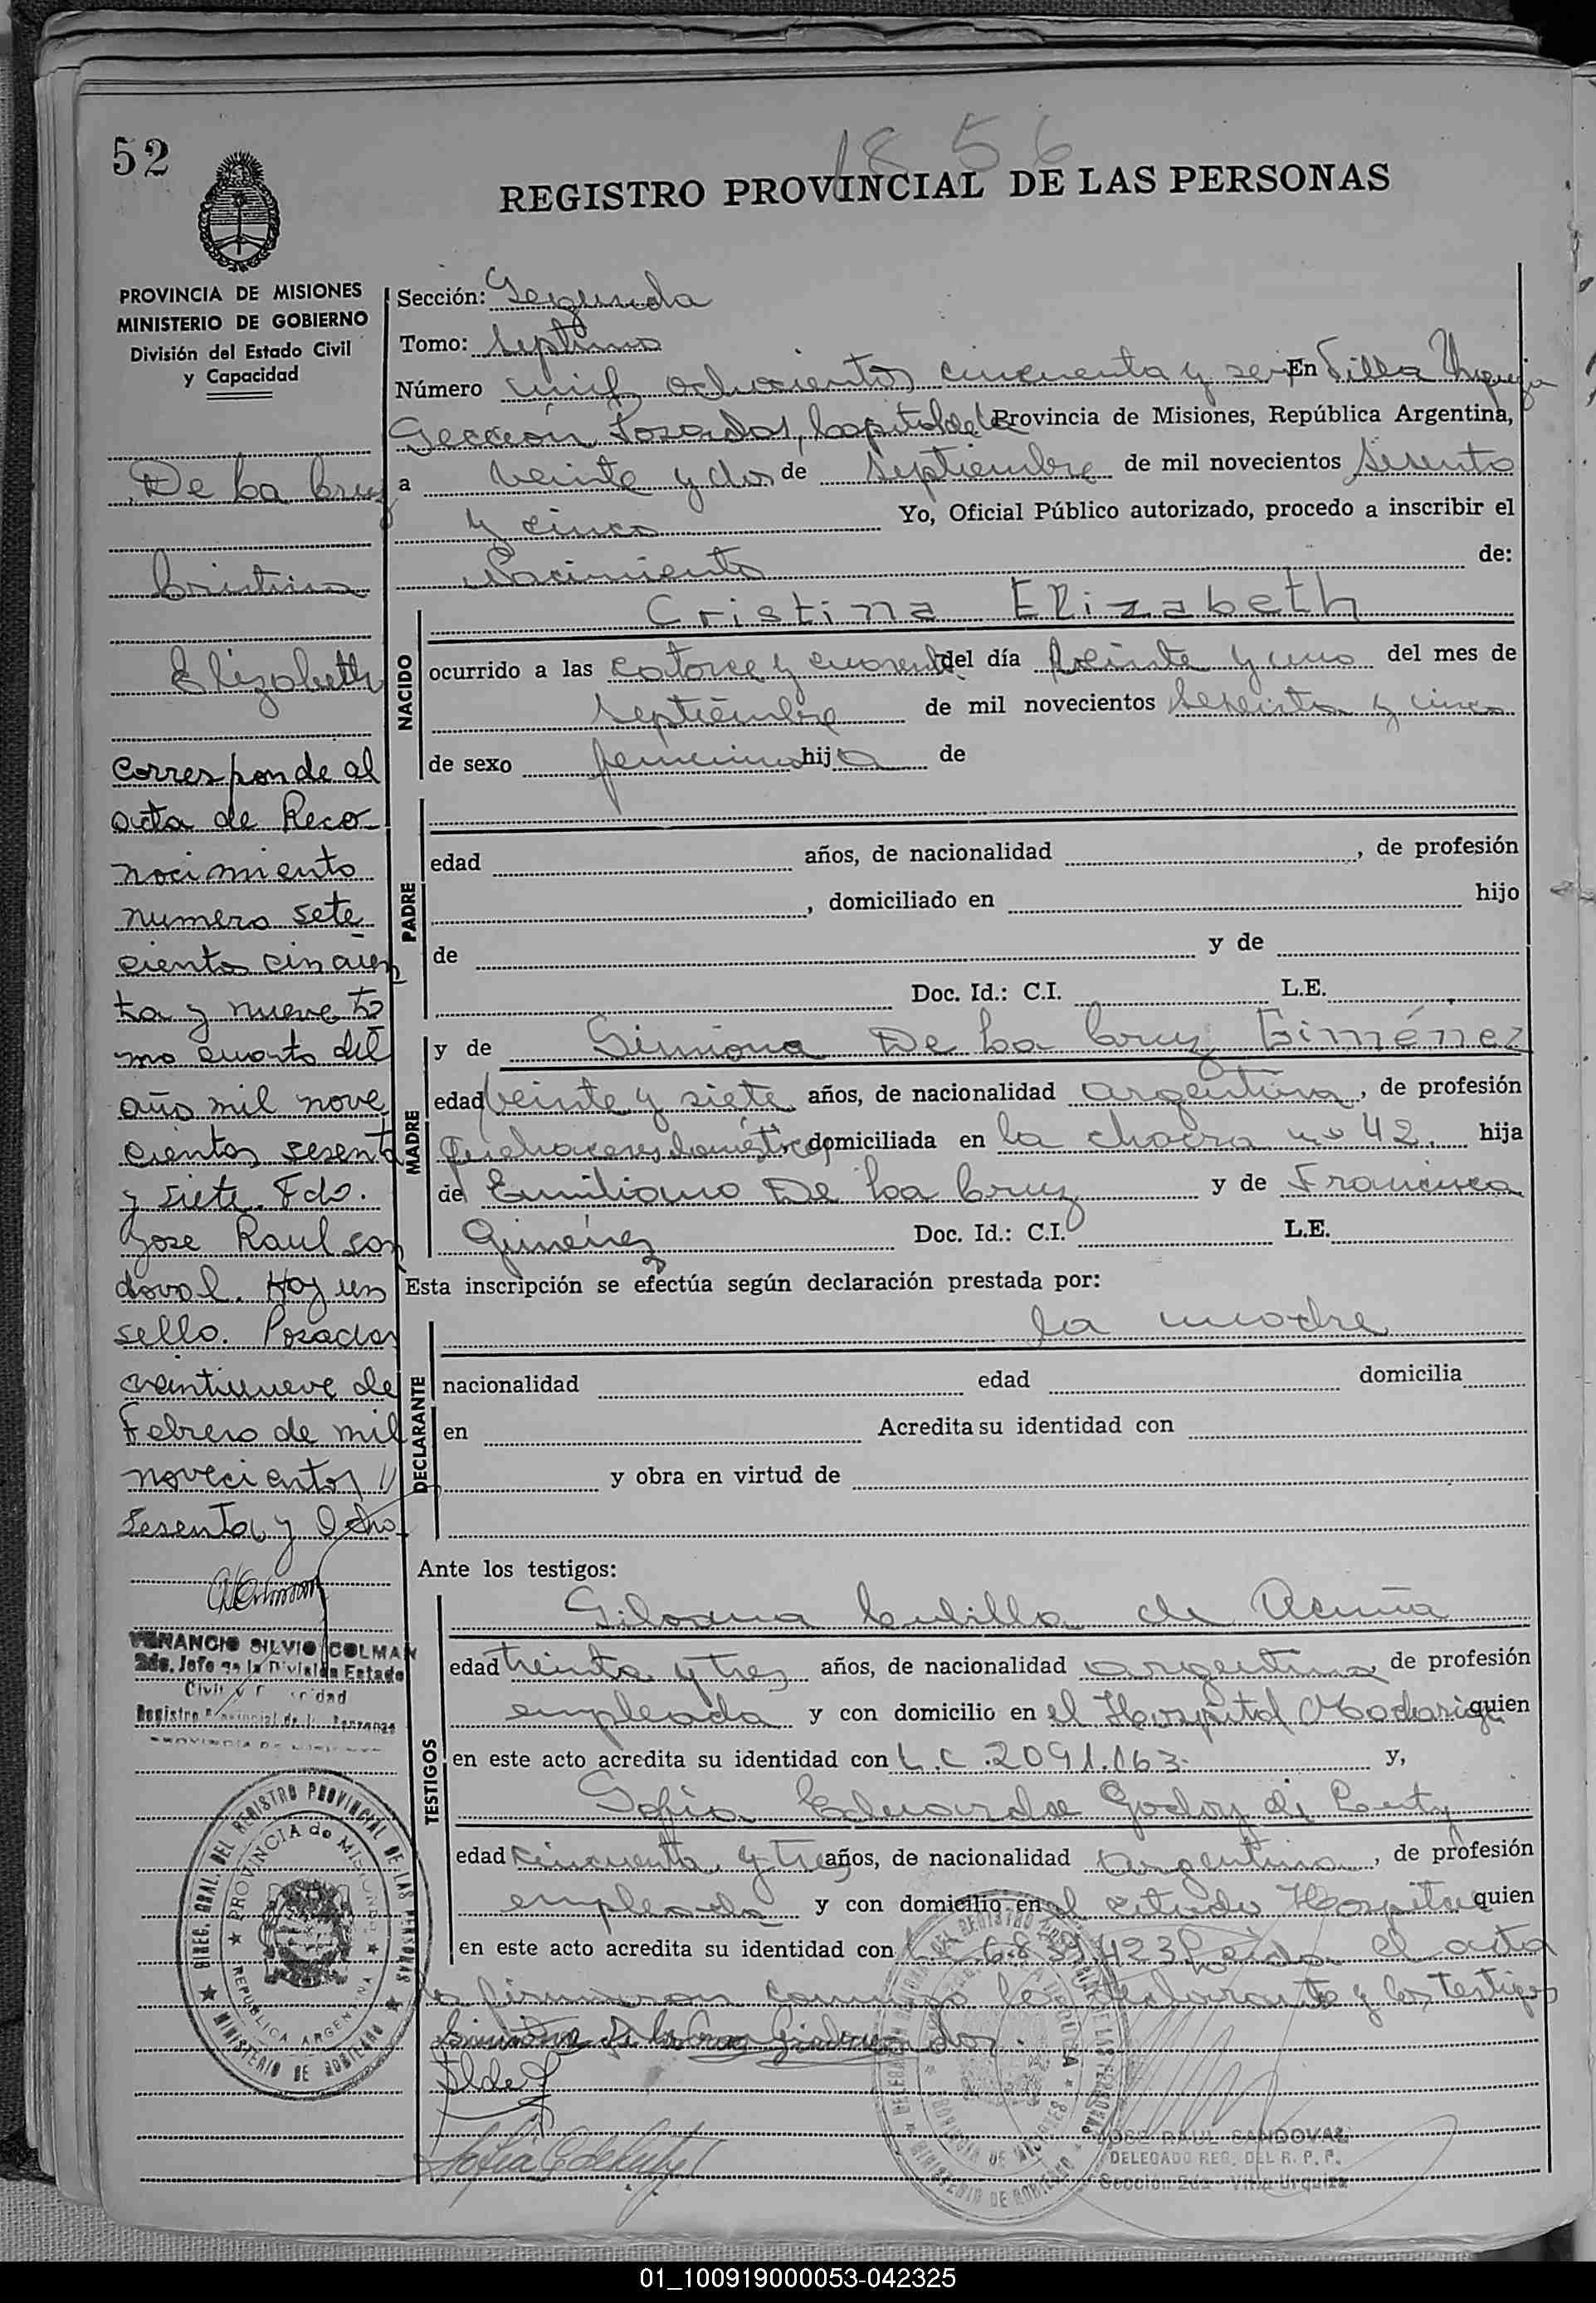 1856
52
REGISTRO PROVINCIAL DE LAS PERSONAS
PROVINCIA DE MISIONES
MINISTERIO DE GOBIERNO
División del Estado Civil
y Capacidad
De La Cruz
Cristina
Elizabeth
Corresponde al
acta de Reco-
nocimiento
numero sete
cientos cincuen
ta y nueve to
mo cuarto del
año mil nove
cientos sesenta
y siete. Fdo.
Jose Raul San
doval. Hay un
sello. Posadas
veintinueve de
Febrero de mil
novecientos
Sesenta y Ocho.
VENANCIO SILVIO COLMAN
2do. Jefe de la División Estado
Civil y
Registro Provincial de las Personas
DIREC. GRAL. DEL REGISTRO PROVINCIAL DE LAS PERSONAS
MINISTERIO DE GOBIERNO
PROVINCIA de MISIONES
REPUBLICA ARGENTINA
Sección: Segunda
Tomo: Septimo
Número mil ochocientos cincuenta y seis En Villa Urquiza
Sección Posadas, Capital de la Provincia de Misiones, República Argentina,
a veinte y dos de septiembre de mil novecientos sesenta
y cinco Yo, Oficial Público autorizado, procedo a inscribir el
Nacimiento de:
NACIDO
Cristina Elizabeth
ocurrido a las catorce y cuarenta del día veinte y uno del mes de
septiembre de mil novecientos sesenta y cinco
de sexo femenino hija de
PADRE
edad años, de nacionalidad , de profesión
, domiciliado en hijo
de y de
Doc. Id.: C.I. L.E.
MADRE
y de Simona De La Cruz Giménez
edad veinte y siete años, de nacionalidad argentina, de profesión
quehaceres domésticos domiciliada en la chacra nº 42. hija
de Emiliano De La Cruz y de Francisca
Giménez Doc. Id.: C.I. L.E.
Esta inscripción se efectúa según declaración prestada por:
DECLARANTE
la madre
nacionalidad edad domicilia
en Acredita su identidad con
y obra en virtud de
Ante los testigos:
TESTIGOS
Cubilla de Acuña
edad treinta y tres años, de nacionalidad argentina de profesión
empleada y con domicilio en el Hospital Madariaga quien
en este acto acredita su identidad con L.C. 2091.163. y,
Sofia Eduarda Godoy de
edad cincuenta y tres años, de nacionalidad argentina, de profesión
empleada y con domicilio en el citado Hospital quien
en este acto acredita su identidad con Leida el acta
la firmaron conmigo la declarante y los testigos
Simona de la Cruz
JOSE RAUL SANDOVAL
DELEGADO REG. DEL R. P. P.
Sección 2da - Villa Urquiza
01_100919000053-042325